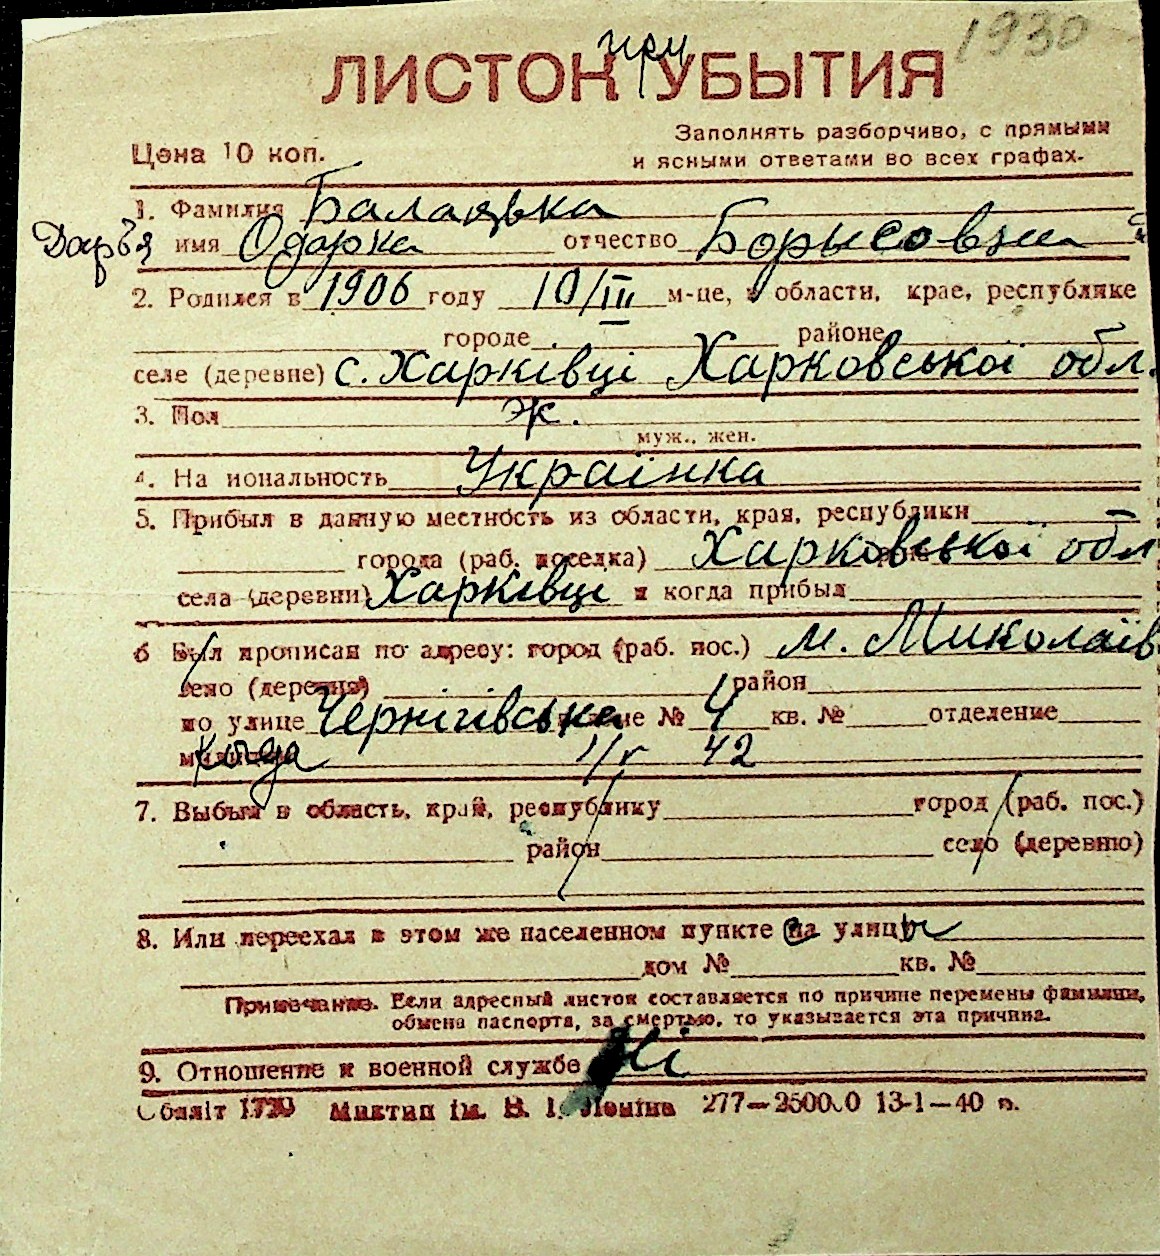 1930
при
ЛИСТОК УБЫТИЯ
Цена 10 коп.
Заполнять разборчиво, с прямыми
и ясными ответами во всех графах.
1. Фамилия Балацька
Дарья имя Одарка отчество Борысовна
2. Родился в 1906 году 10/III м-це, в области, крае, республике
городе районе
селе (деревне) с. Харківці Харковської обл.
3. Пол ж.
муж., жен.
4. На иональность Українка
5. Прибыл в данную местность из области, края, республики
города (раб. поселка) Харковської обл
села (деревни) Харківці и когда прибыл
6 Был прописан по адресу: город (раб. пос.) м. Миколаїв
село (деревня) район
по улице Чернігівська № 4 кв. № отделение
когда 1/V 42
7. Выбыл в область, край, республику город (раб. пос.)
район село (деревню)
8. Или переехал в этом же населенном пункте са улицы
дом № кв. №
Примечание. Если адресный листок составляется по причине перемены фамилии,
обмена паспорта, за смертью, то указывается эта причина.
9. Отношение к военной службе Ні
Обліт Миктип ім. В. І. Леніна 277—250000 13-1—40 р.